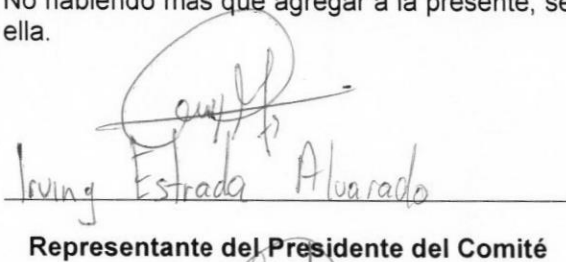 No habiendo más que agregar a la presente, se
ella.
Irving Estrada Alvarado
Representante del Presidente del Comité